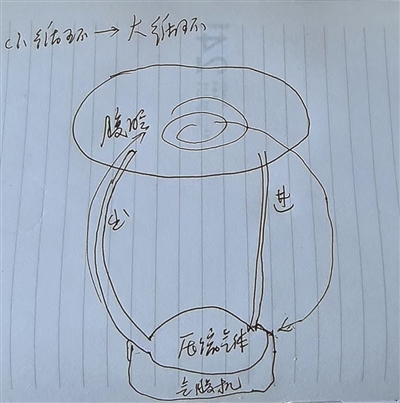 小循环→大循环
腹腔
出
进
压缩气体
气腹机